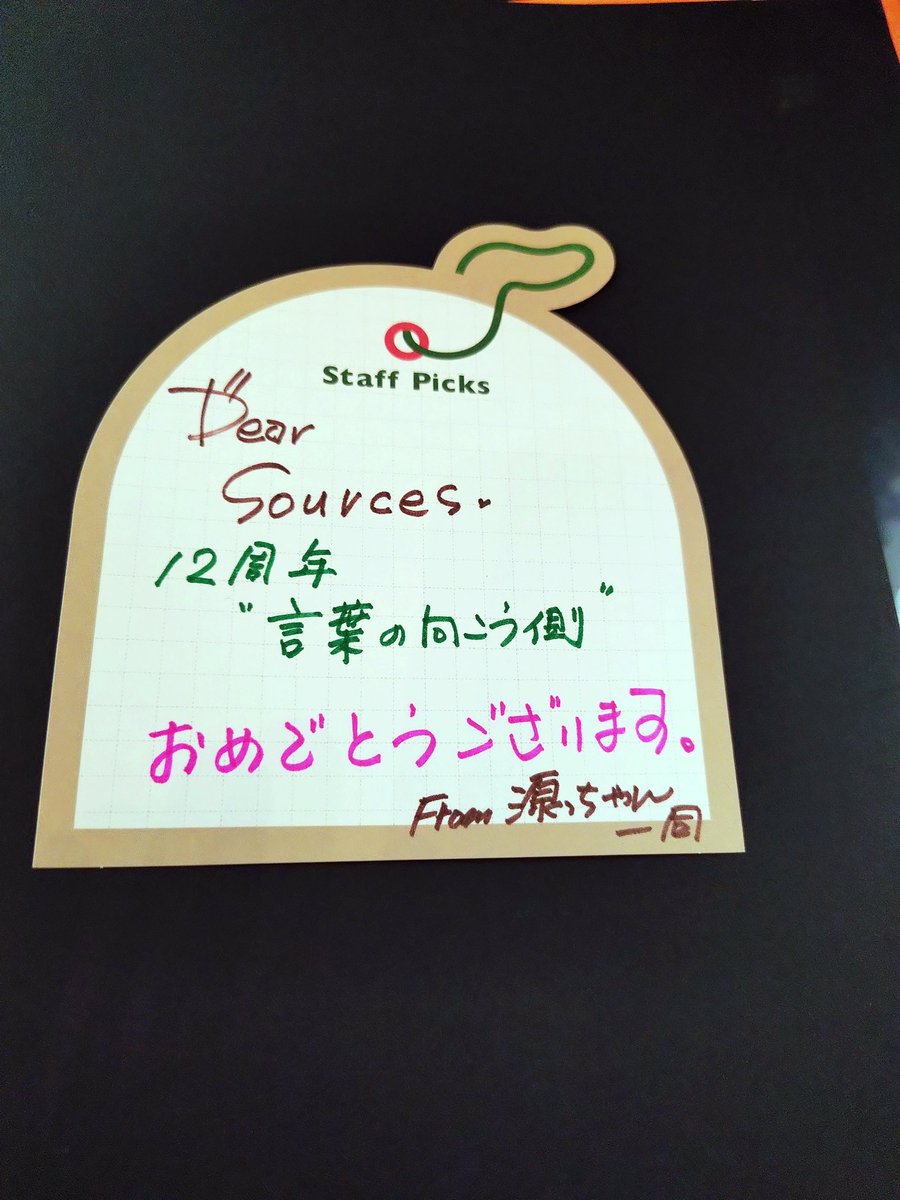 Staff Picks
Dear
Sources.
12周年
"言葉の向こう側"
おめでとうございます。
From 源っちゃん
一同